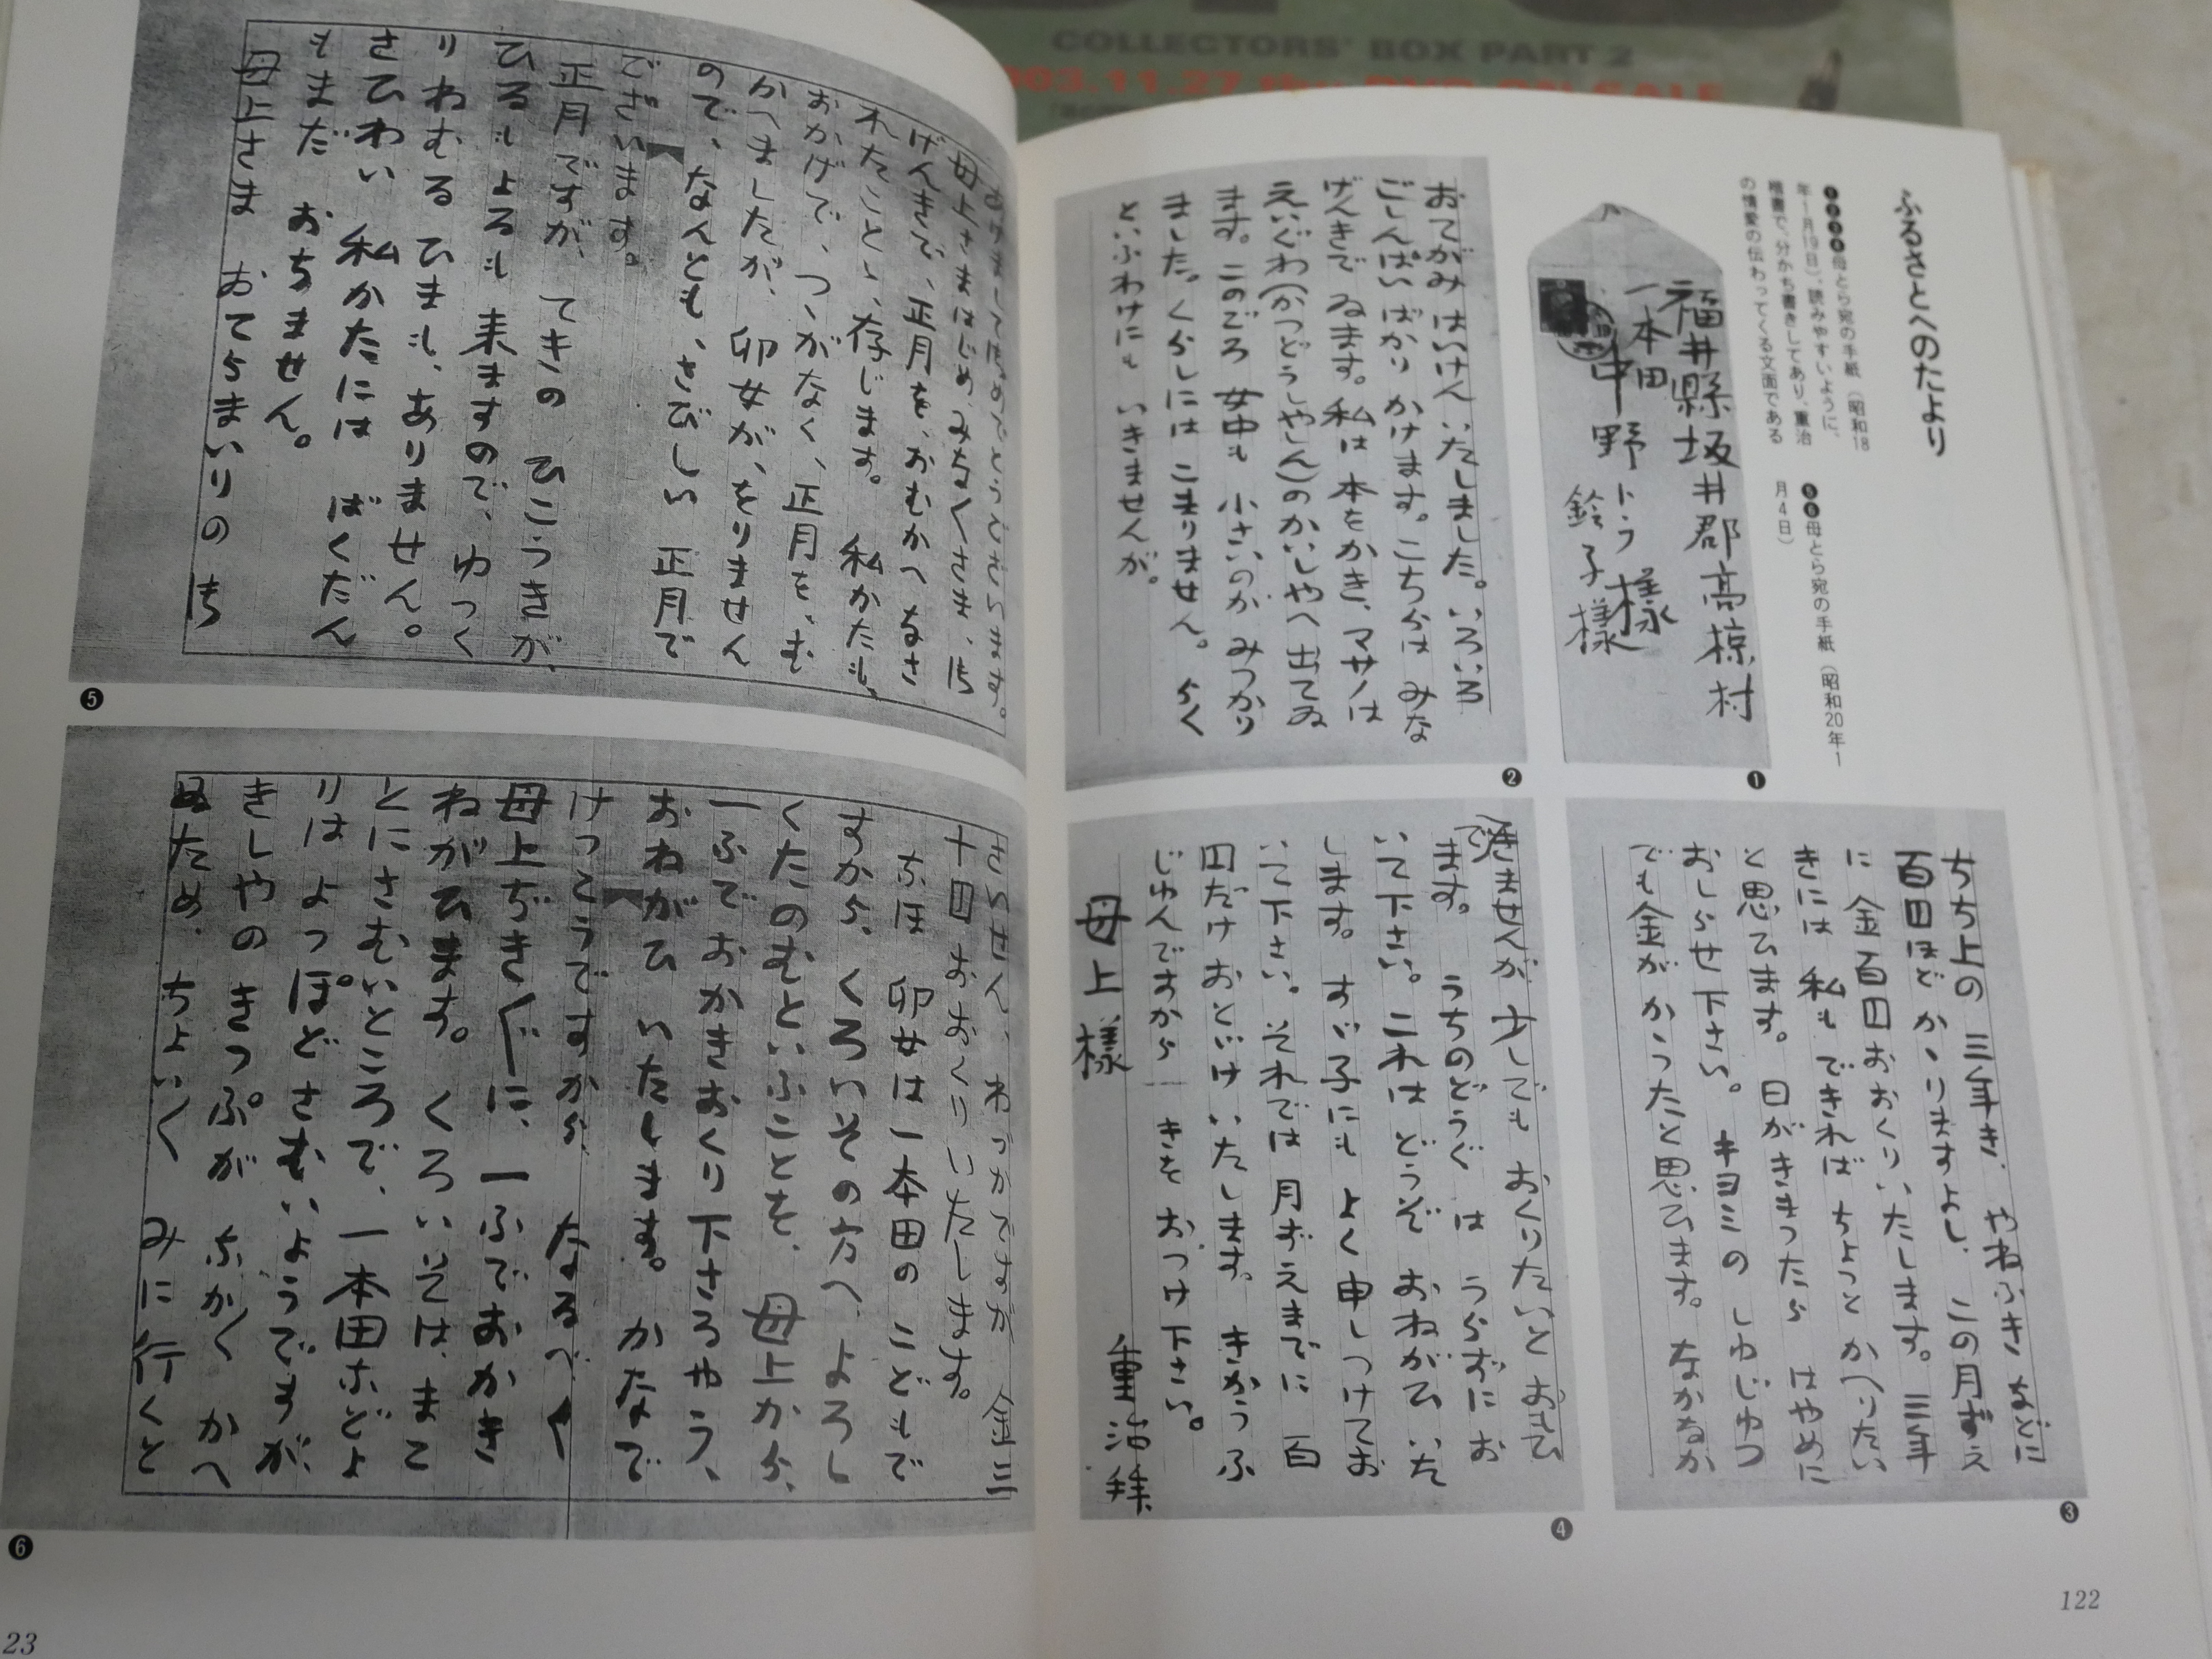 COLLECTORS' BOX PART 2
ふるさとへのたより
❶❷❸❹母とら宛の手紙（昭和18
年1月19日）、読みやすいように、
楷書で、分かち書きしてあり、重治
の情愛の伝わってくる文面である
❺❻母とら宛の手紙（昭和20年1
月4日）
福井縣坂井郡高椋村
一本田
中野トラ様
鈴子様
❶
おてがみ はいけん いたしました。いろいろ
ごしんぱいばかり かけます。こちらは みな
げんきで ゐます。私は 本をかき、マサノは
えいぐわ（かつどうしやしん）のかいしやへ 出てゐ
ます。このごろ 女中も 小さいのが みつかり
ました。くらしには こまりません。らく
といふわけにも いきませんが。
❷
ちち上の 三年き、やねふき などに
百円ほど かゝりますよし、この月ずえ
に 金百円おおくりいたします。三年
きには 私も できれば ちよつと かへりたい
と思ひます。日がきまつたら はやめに
おしらせ下さい。キヨミの しゆじゆつ
でも金が かゝつたと思ひます。なかなか
❸
できませんが 少しでも おくりたいと おもひ
ます。うちのどうぐ は うらずに お
いて下さい。これは どうぞ おねがひ いた
します。すゞ子にも よく 申しつけてお
いて下さい。それでは 月ずえまでに 百
円だけ おとゞけ いたします。きかうふ
じゆんですから きを おつけ下さい。
重治拝
母上様
❹
母上さまはじめ、みなくさま、
げんきで、正月を、おむかへ なさ
れたこと、存じます。私かたも、
おかげで、つゝがなく、正月を、む
かへましたが、卯女が、をりません
ので、なんとも、さびしい 正月で
ございます。
正月ですが、てきの ひこうきが、
ひるも よるも 来ますので、ゆつく
りねむる ひまも、ありません。
さひわい 私かたには ばくだん
もまだ おちません。
母上さま おてらまいりの
❺
さいせん、わづかですが 金三
十円 おおくりいたします。
なほ 卯女は 一本田の こどもで
すから、くろいその方へ、よろし
くたのむといふことを、母上から、
一ふで おかきおくり下さるやう、
おねがひ いたします。かなで
けつこうですから なるべく
母上ぢきぐに、一ふでおかき
ねがひます。くろいそは、まこ
とにさむいところで、一本田などよ
りは よつぽどさむいようですが、
きしやの きつぷが なかく かへ
ぬため、ちよいく みに行くと
❻
122
23